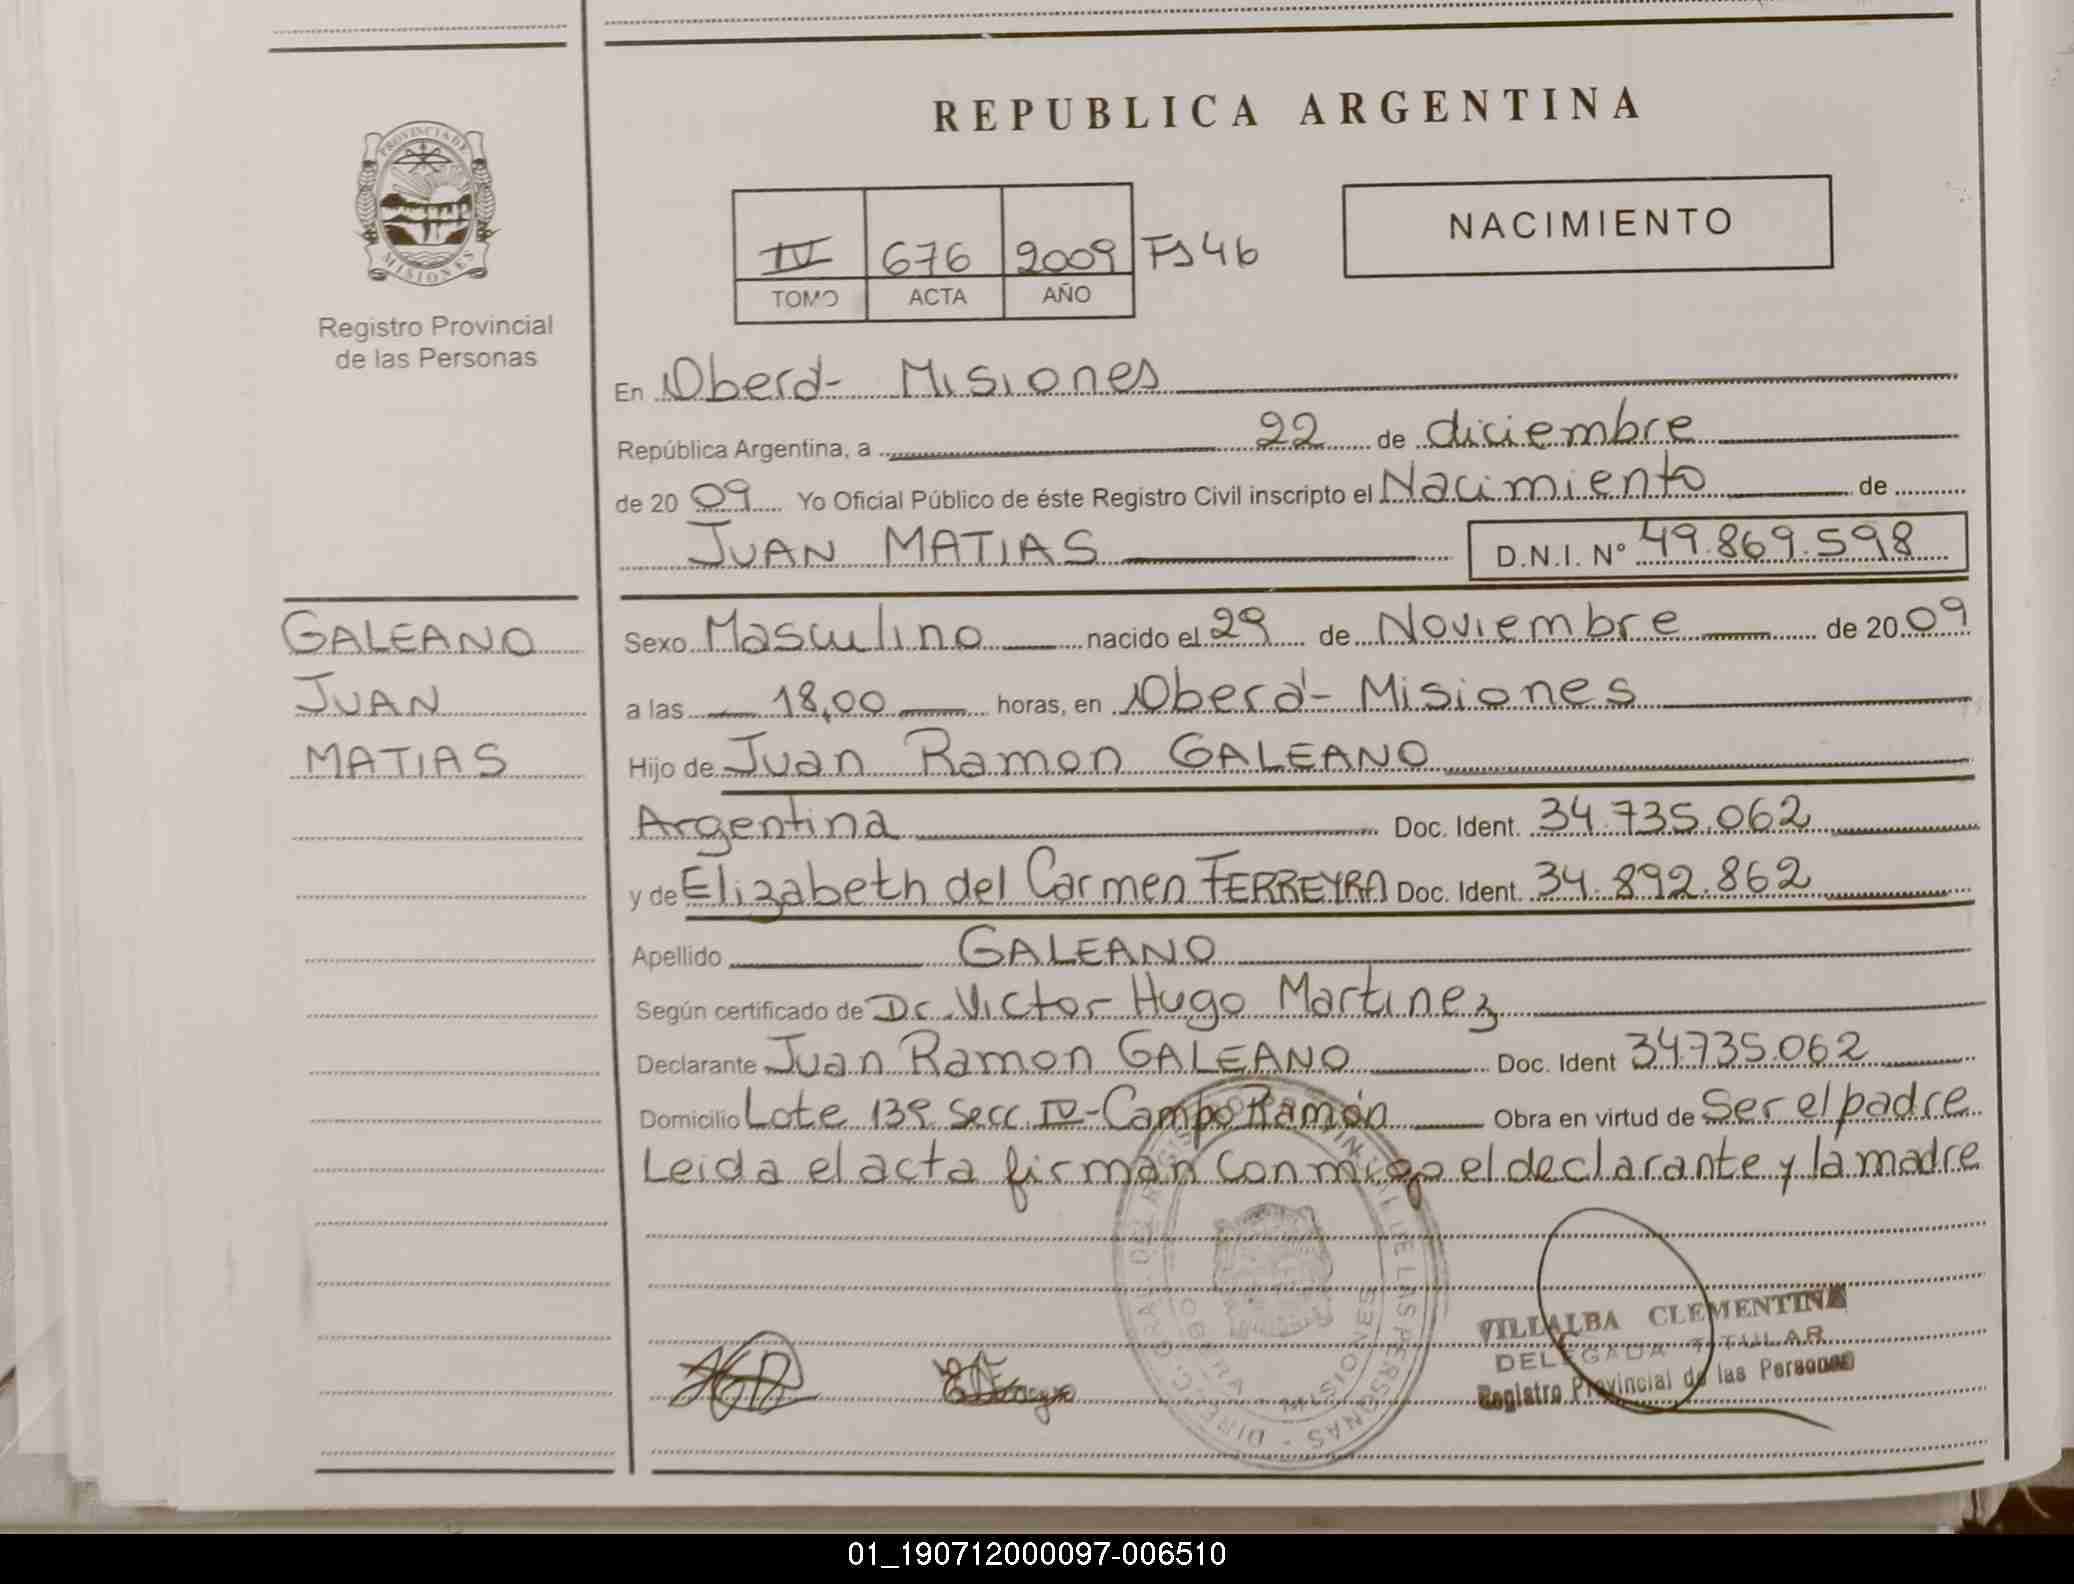 REPUBLICA ARGENTINA
PROVINCIA DE MISIONES
Registro Provincial
de las Personas
IV 676 2009 Fs 46
TOMO ACTA AÑO
NACIMIENTO
En Oberá - Misiones
República Argentina, a 22 de diciembre
de 2009 Yo Oficial Público de éste Registro Civil inscripto el Nacimiento de
JUAN MATIAS D.N.I. Nº 49.869.598
GALEANO
JUAN
MATIAS
Sexo Masculino nacido el 29 de Noviembre de 2009
a las 18,00 horas, en Oberá - Misiones
Hijo de Juan Ramon GALEANO
Argentina Doc. Ident. 34.735.062
y de Elizabeth del Carmen FERREYRA Doc. Ident. 34.892.862
Apellido GALEANO
Según certificado de Dr. Victor Hugo Martinez
Declarante Juan Ramon GALEANO Doc. Ident 34.735.062
Domicilio Lote 139 Secc IV - Campo Ramón Obra en virtud de Ser el padre
Leida el acta firman conmigo el declarante y la madre
VILLALBA CLEMENTINA
DELEGADA TITULAR
Registro Provincial de las Personas
01_190712000097-006510